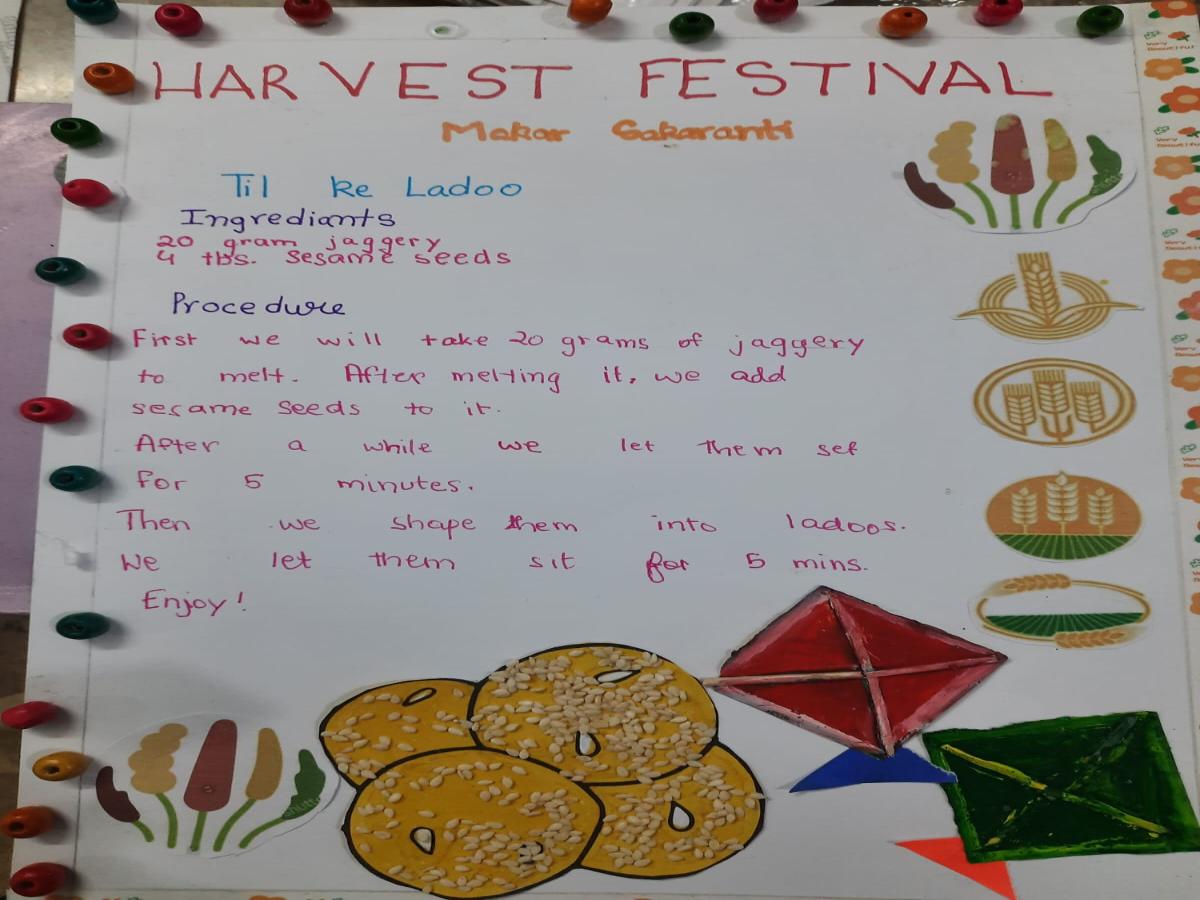 HARVEST FESTIVAL
Makar Sakaranti
Til ke Ladoo
Ingrediants
20 gram jaggery
4 tbs. sesame seeds
Procedure
First we will take 20 grams of jaggery
to melt. After melting it, we add
sesame seeds to it.
After a while we let them set
for 5 minutes.
Then we shape them into ladoos.
We let them sit for 5 mins.
Enjoy!
Very
Beautiful